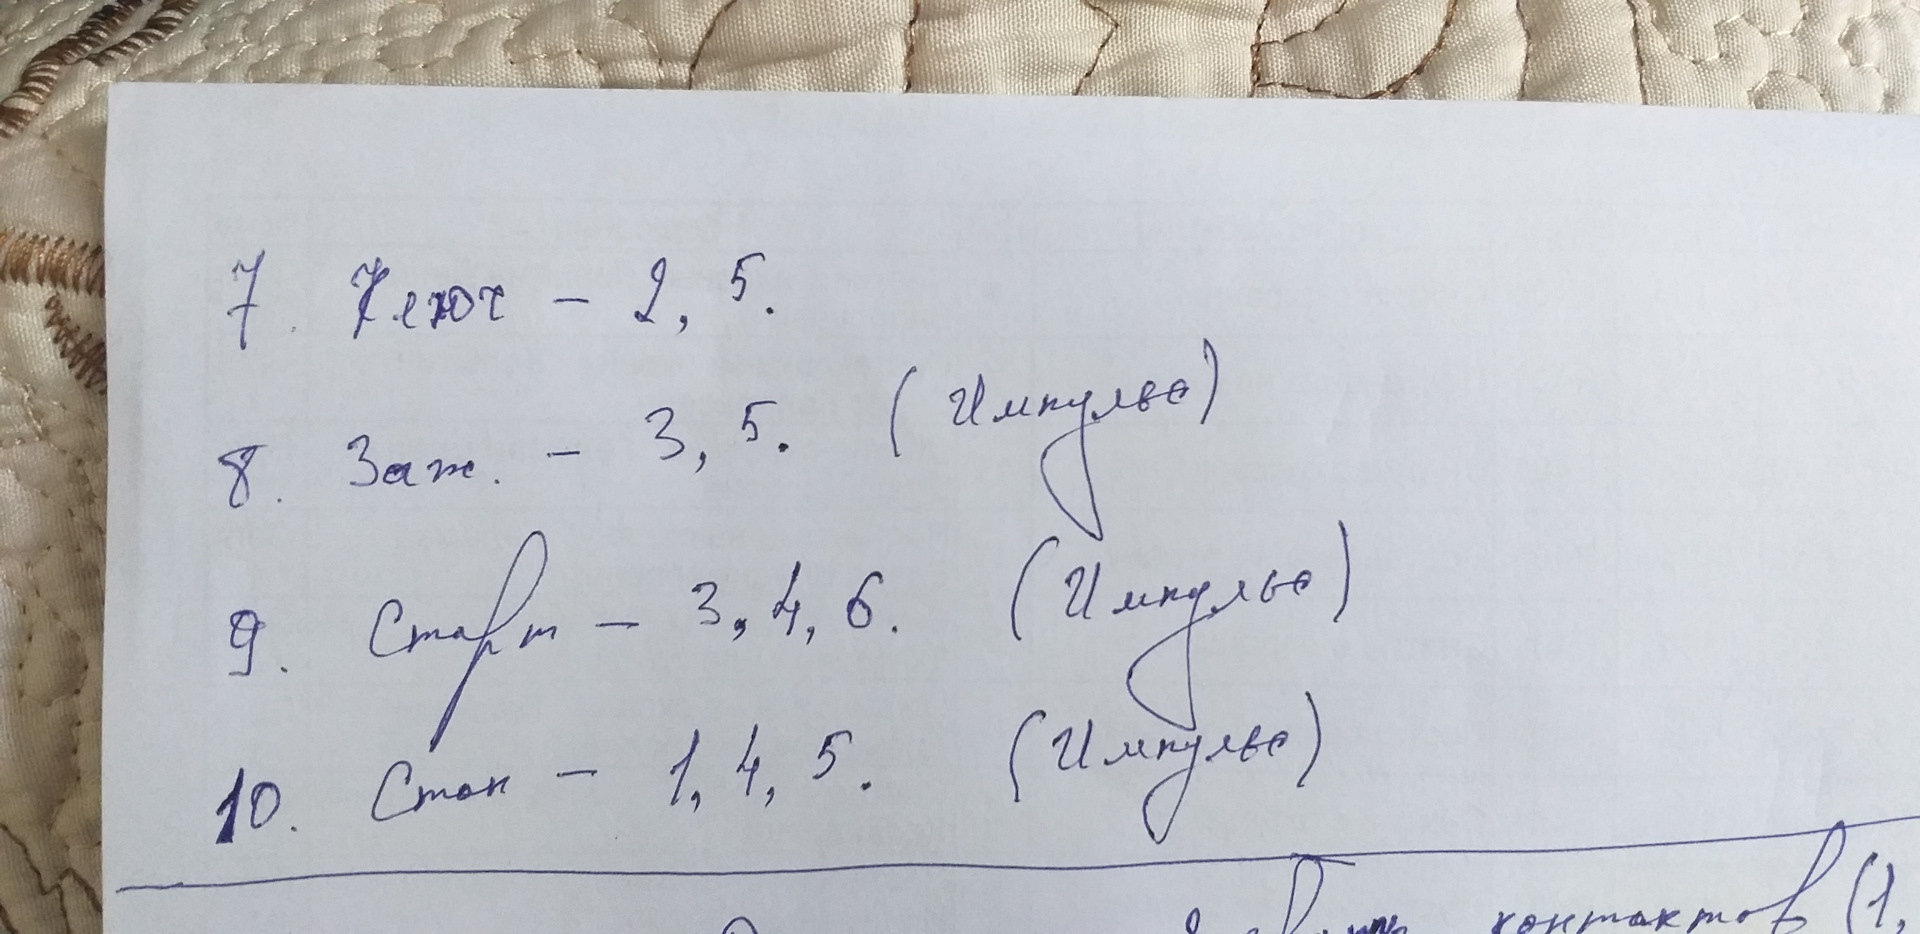 7. Ключ - 2, 5.
8. Заж. - 3, 5. (Импульс)
9. Старт - 3, 4, 6. (Импульс)
10. Стоп - 1, 4, 5. (Импульс)
контактов (1,